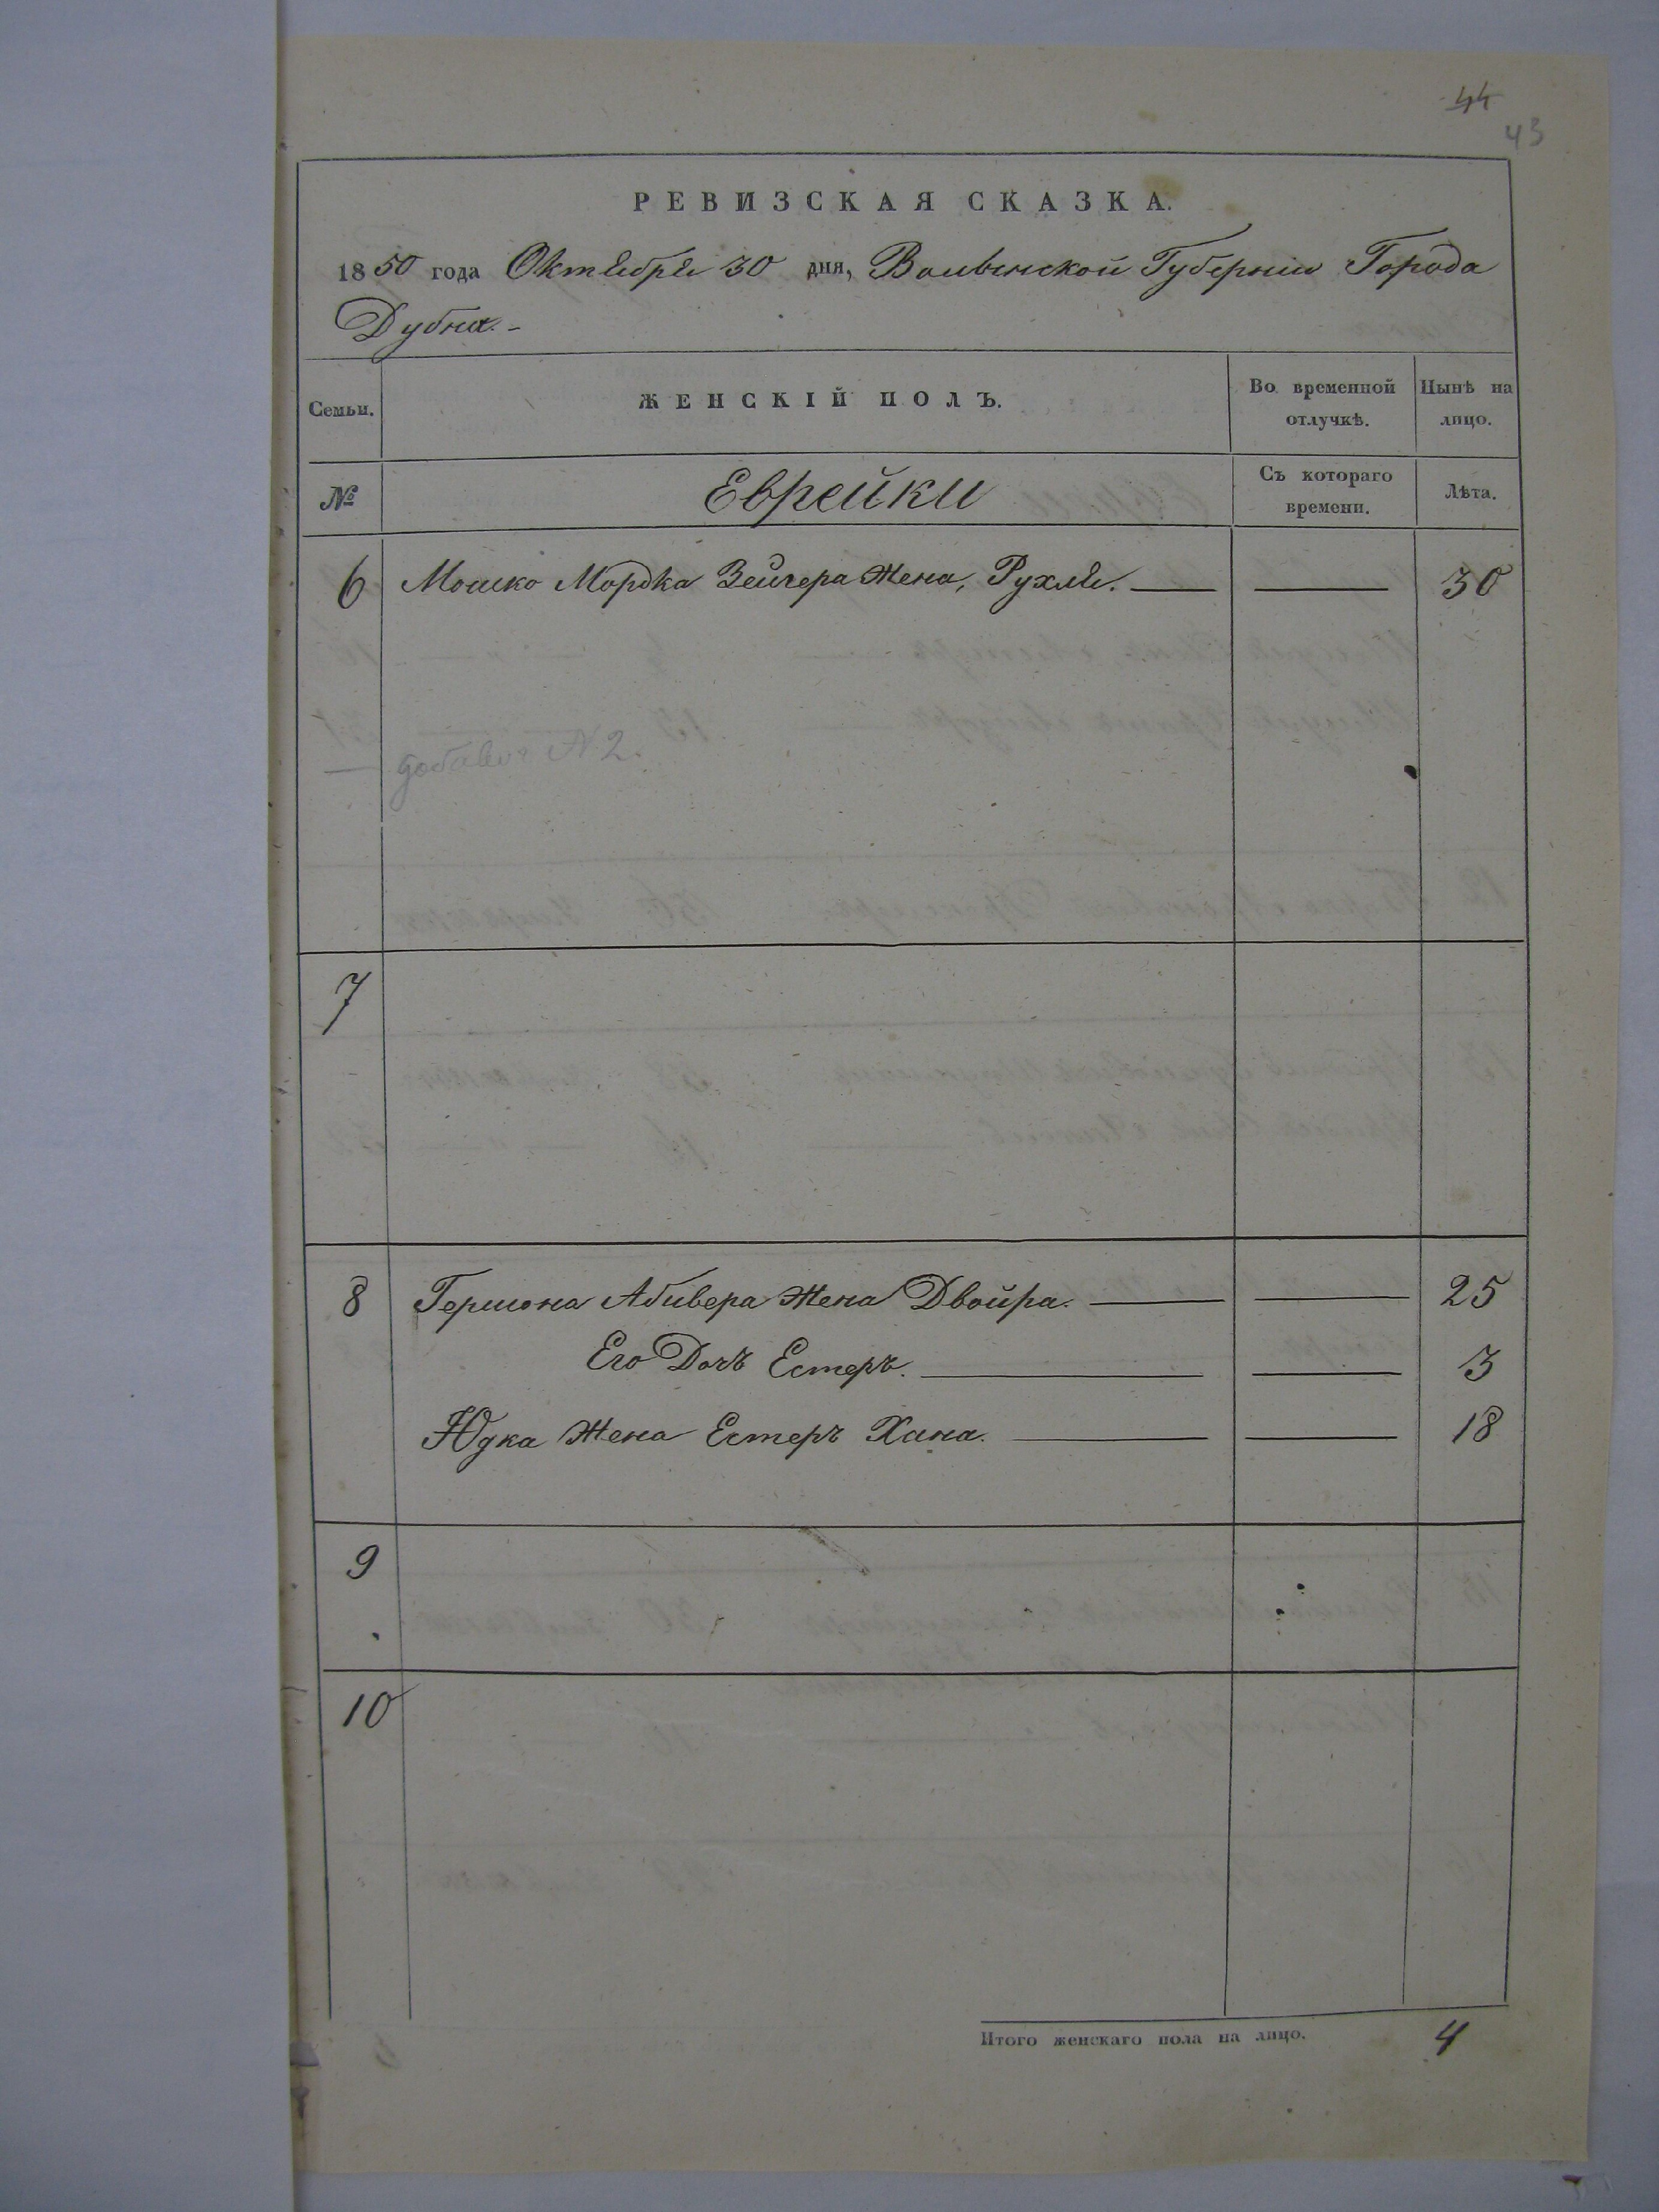 44
43
РЕВИЗСКАЯ СКАЗКА.
1850 года Октября 30 дня, Волынской Губерніи Города
Дубна.-
Семьи.
ЖЕНСКІЙ ПОЛЪ.
Во временной отлучкѣ.
Нынѣ на лицо.
№
Еврейки
Съ котораго времени.
Лѣта.
6 Мошко Мордка Зейгера Жена, Рухля. 30
№ 2.
7
8 Гершона Абивера Жена Двойра. 25
Его Дочь Естеръ. 3
Юдка Жена Естеръ Хана. 18
9
10
Итого женскаго пола на лицо. 4